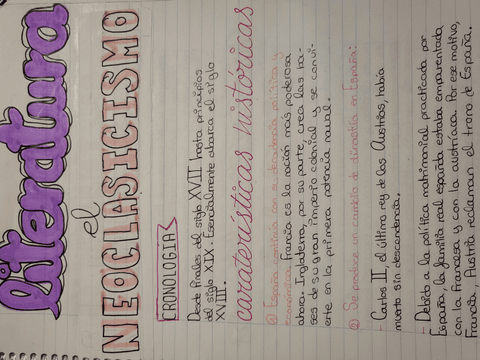 Literatura
el
NEOCLASICISMO
CRONOLOGIA
Desde finales del siglo XVII hasta principios
del siglo XIX. Esencialmente abarca el siglo
XVIII.
caraterísticas históricas
① España continúa con su decadencia política y
económica. Francia es la nación más poderosa
ahora. Inglaterra, por su parte, crea las ba-
ses de su gran imperio colonial y se convi-
erte en la primera potencia naval.
② Se produce un cambio de dinastía en España:
- Carlos II, el último rey de los Austrias, había
muerto sin descendencia.
- Debido a la política matrimonial practicada por
España, la familia real española estaba emparentada
con la francesa y con la austríaca. Por ese motivo,
Francia, Austria reclaman el trono de España.